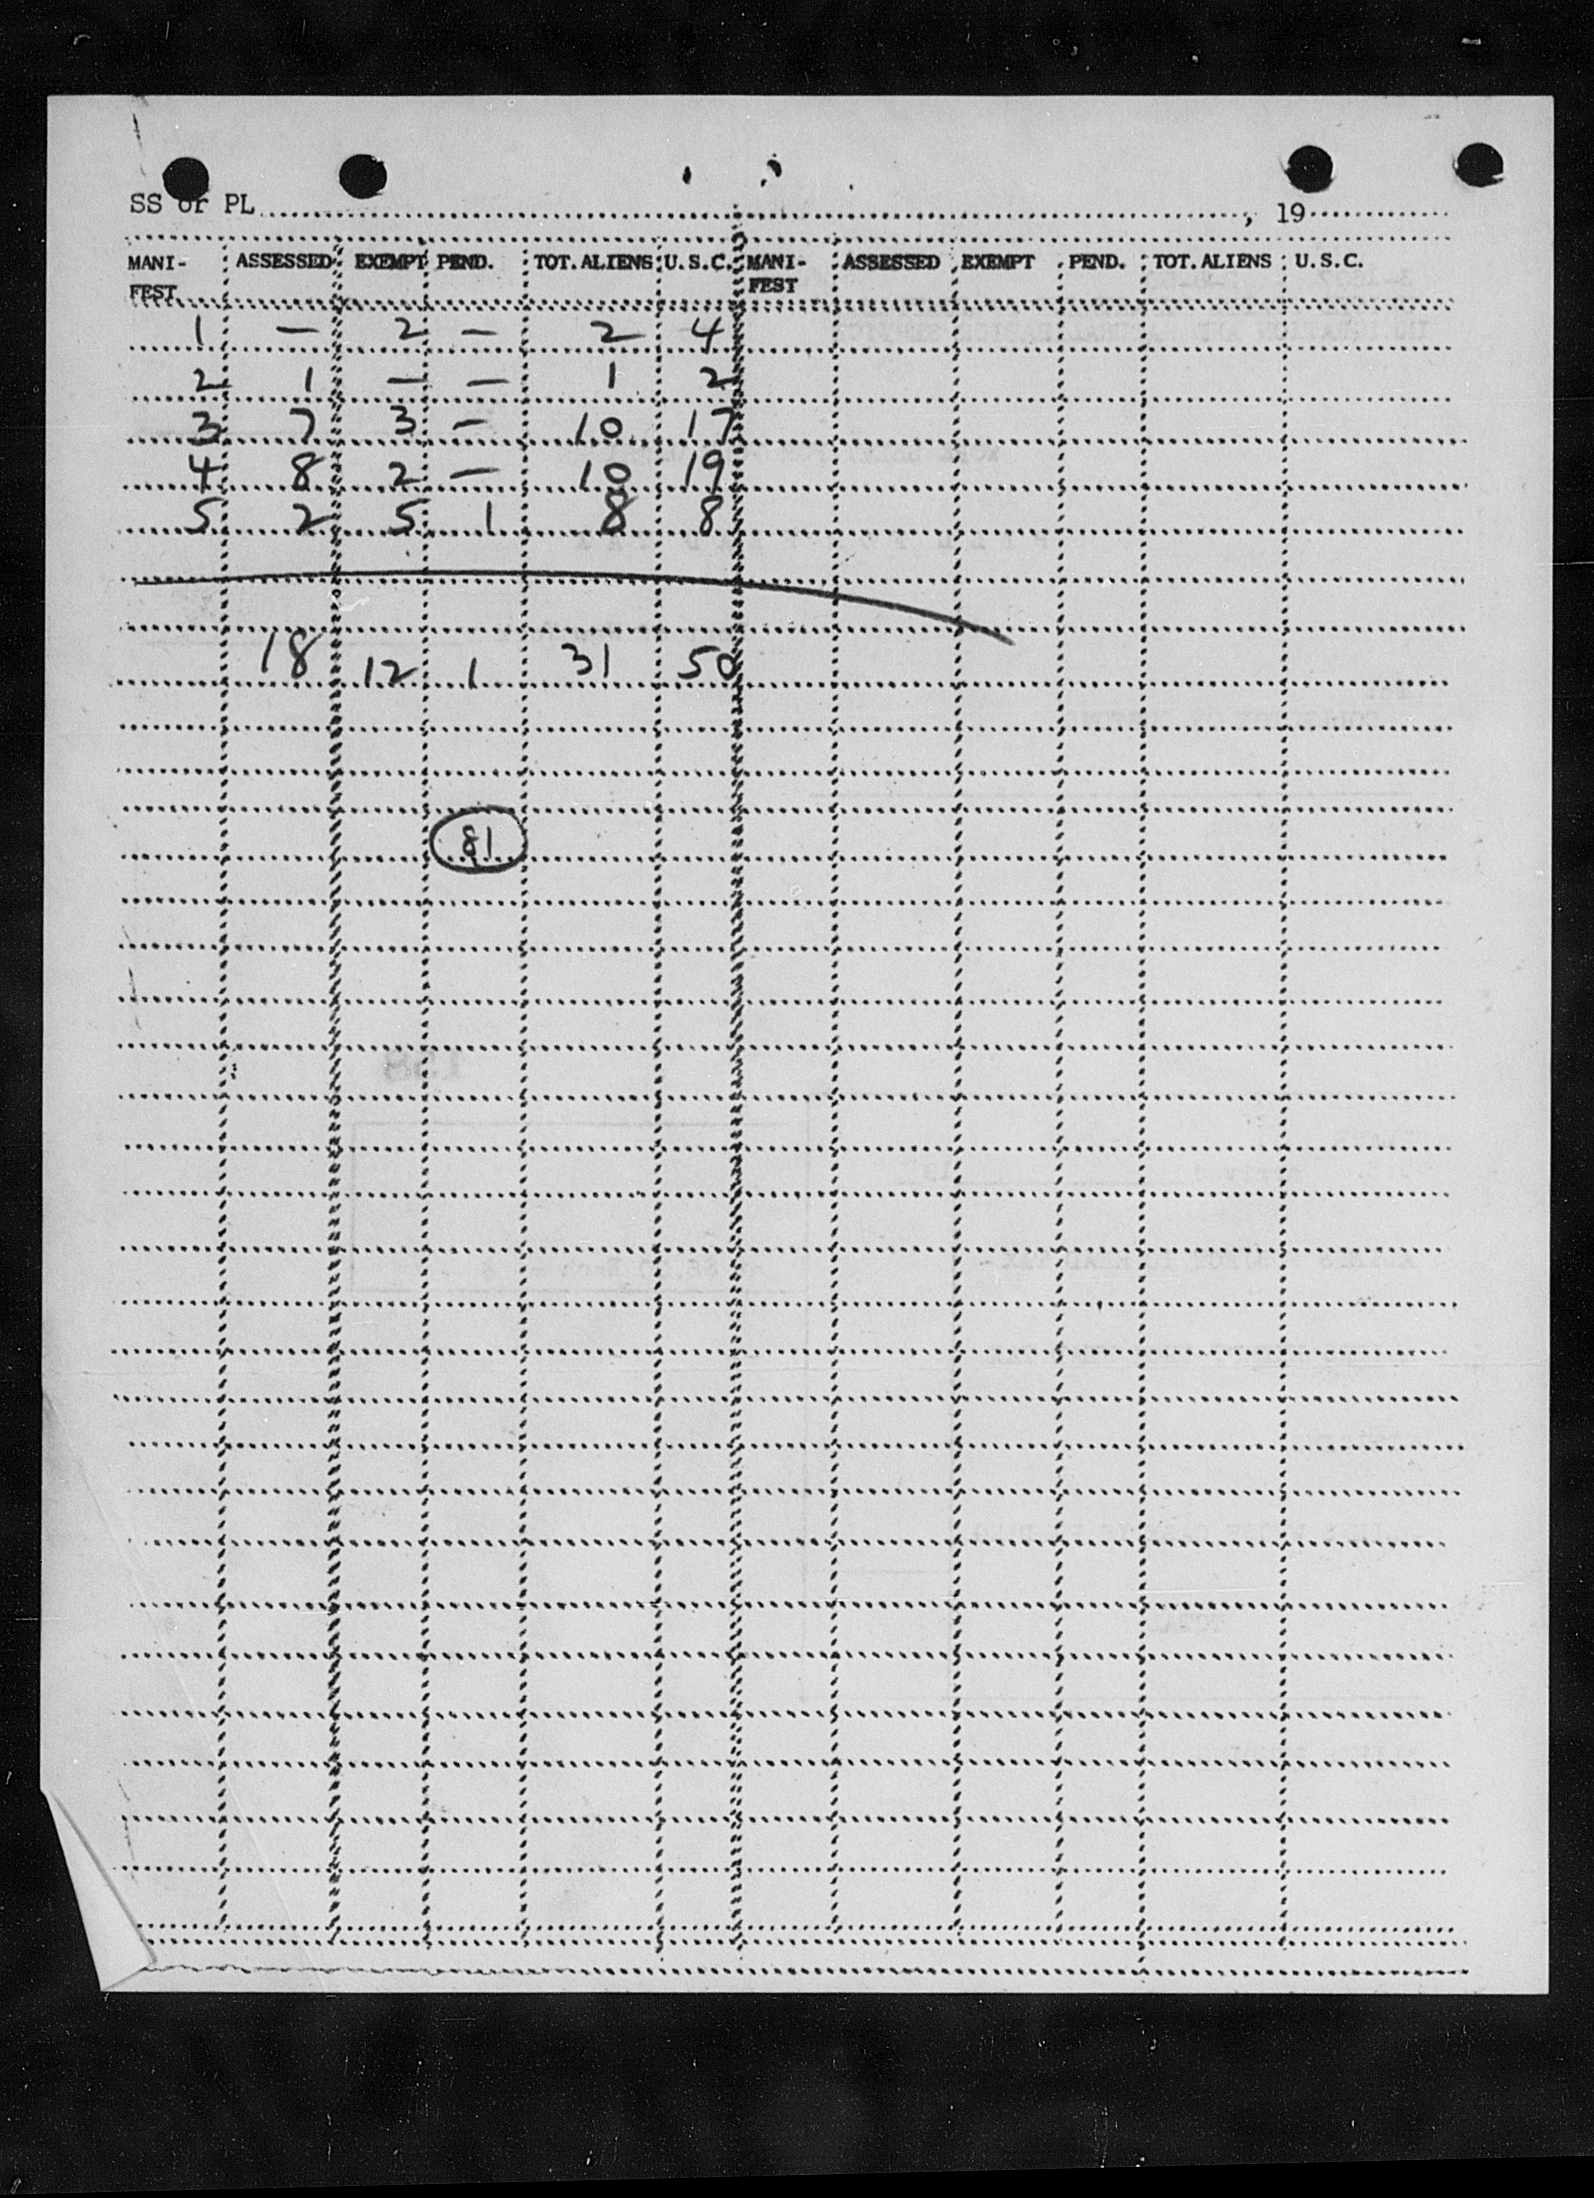 SS or PL , 19
MANI-FEST ASSESSED EXEMPT PEND. TOT. ALIENS U.S.C. MANI-FEST ASSESSED EXEMPT PEND. TOT. ALIENS U.S.C.
1 — 2 — 2 4
2 1 — — 1 2
3 7 3 — 10 17
4 8 2 — 10 19
5 2 5 1 8 8
18 12 1 31 50
81